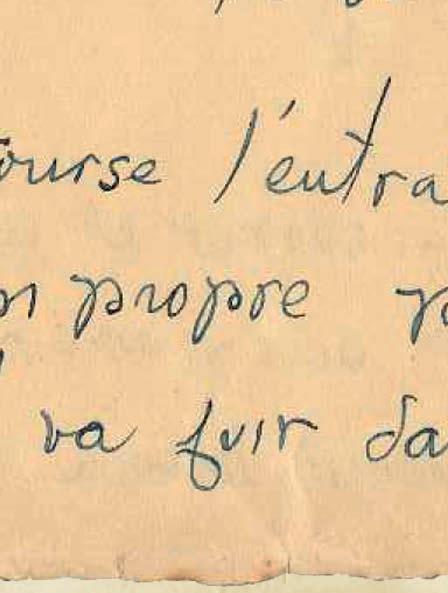 ourse l'entra
n propre p
va fuir da